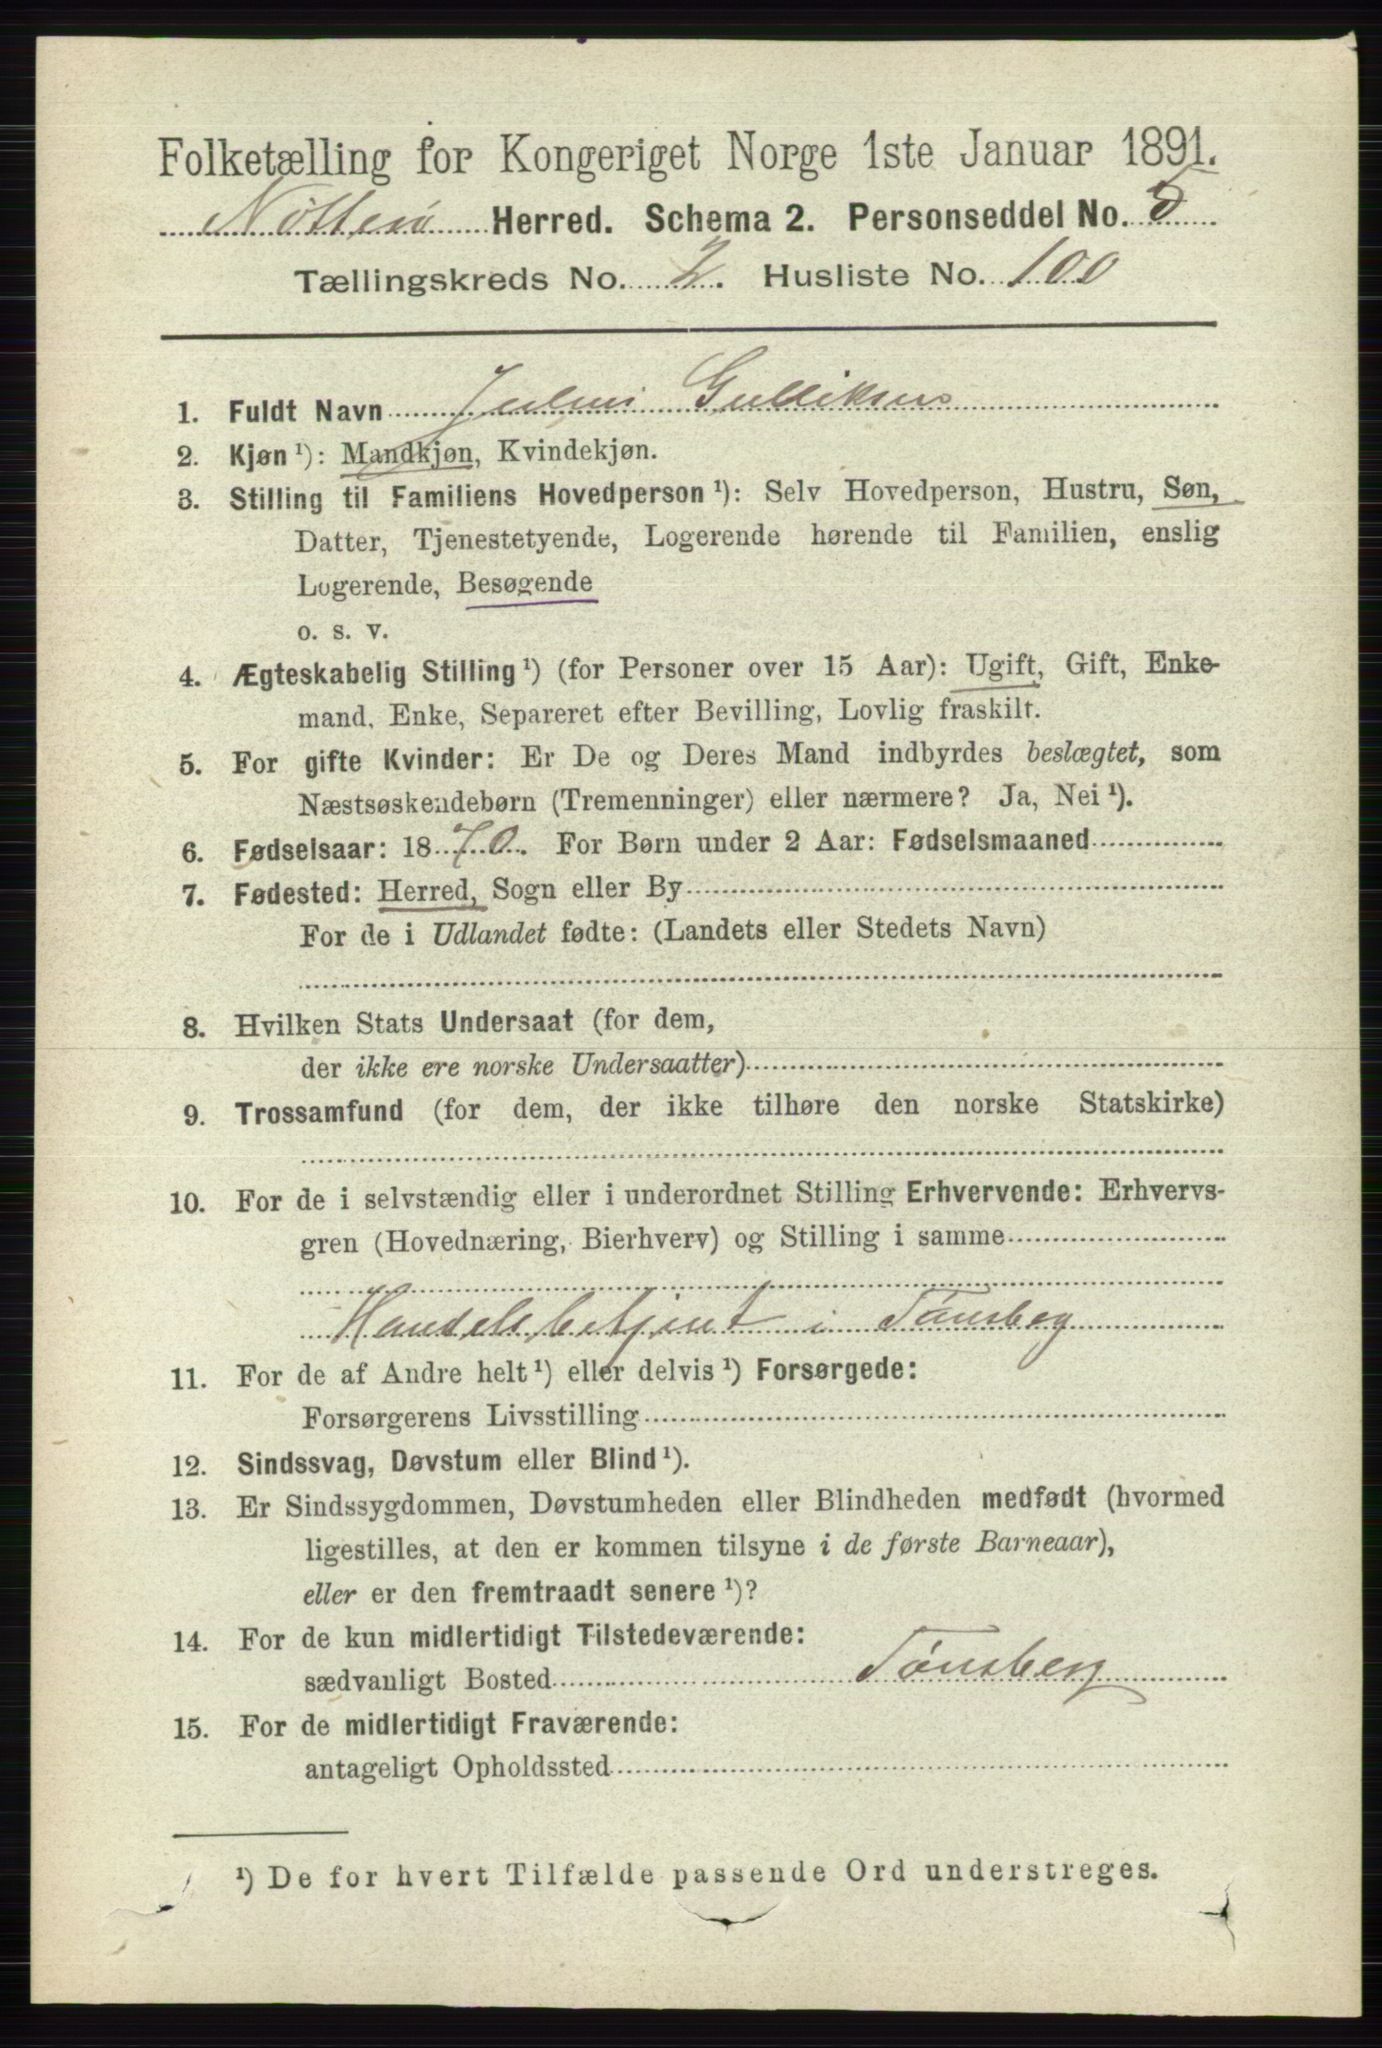 Folketælling for Kongeriget Norge 1ste Januar 1891.
Nøtterø Herred. Schema 2. Personseddel No. 5
Tællingskreds No. 2. Husliste No. 100
1. Fuldt Navn Julius Gulliksen
2. Kjøn ¹): Mandkjøn, Kvindekjøn.
3. Stilling til Familiens Hovedperson ¹): Selv Hovedperson, Hustru, Søn,
Datter, Tjenestetyende, Logerende hørende til Familien, enslig
Logerende, Besøgende
o. s. v.
4. Ægteskabelig Stilling ¹) (for Personer over 15 Aar): Ugift, Gift, Enke-
mand, Enke, Separeret efter Bevilling, Lovlig fraskilt.
5. For gifte Kvinder: Er De og Deres Mand indbyrdes beslægtet, som
Næstsøskendebørn (Tremenninger) eller nærmere? Ja, Nei ¹).
6. Fødselsaar: 1870. For Børn under 2 Aar: Fødselsmaaned
7. Fødested: Herred, Sogn eller By
For de i Udlandet fødte: (Landets eller Stedets Navn)
8. Hvilken Stats Undersaat (for dem,
der ikke ere norske Undersaatter)
9. Trossamfund (for dem, der ikke tilhøre den norske Statskirke)
10. For de i selvstændig eller i underordnet Stilling Erhvervende: Erhvervs-
gren (Hovednæring, Bierhverv) og Stilling i samme
Handelsbetjent i Tønsberg
11. For de af Andre helt ¹) eller delvis ¹) Forsørgede:
Forsørgerens Livsstilling
12. Sindssvag, Døvstum eller Blind ¹).
13. Er Sindssygdommen, Døvstumheden eller Blindheden medfødt (hvormed
ligestilles, at den er kommen tilsyne i de første Barneaar),
eller er den fremtraadt senere ¹)?
14. For de kun midlertidigt Tilstedeværende:
sædvanligt Bosted Tønsberg
15. For de midlertidigt Fraværende:
antageligt Opholdssted
¹) De for hvert Tilfælde passende Ord understreges.